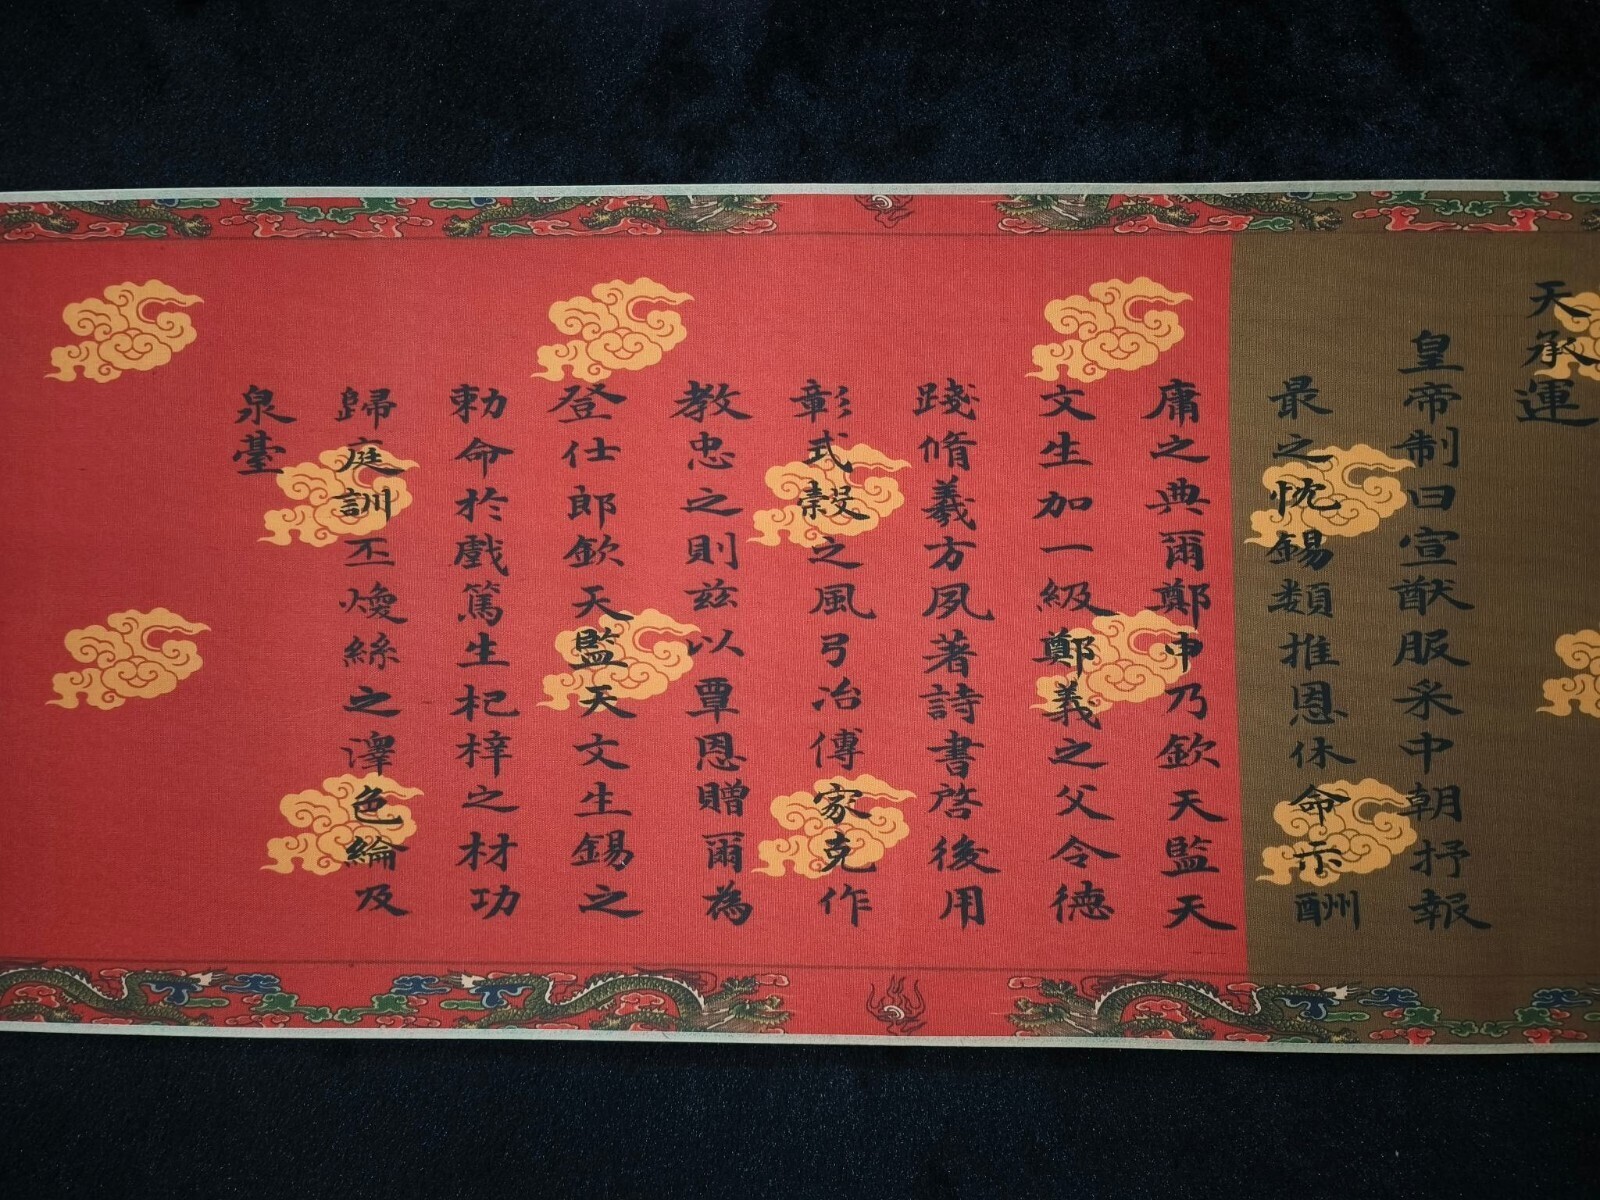 天承運
皇帝制曰宣猷服采中朝抒報
最之忱錫類推恩休命示酬
庸之典爾鄭申乃欽天監天
文生加一級鄭義之父令德
踐脩義方夙著詩書啓後用
彰式穀之風弓冶傳家克作
教忠之則兹以覃恩贈爾為
登仕郎欽天監天文生錫之
勅命於戲篤生杞梓之材功
歸庭訓丕煥絲之澤色綸及
泉臺